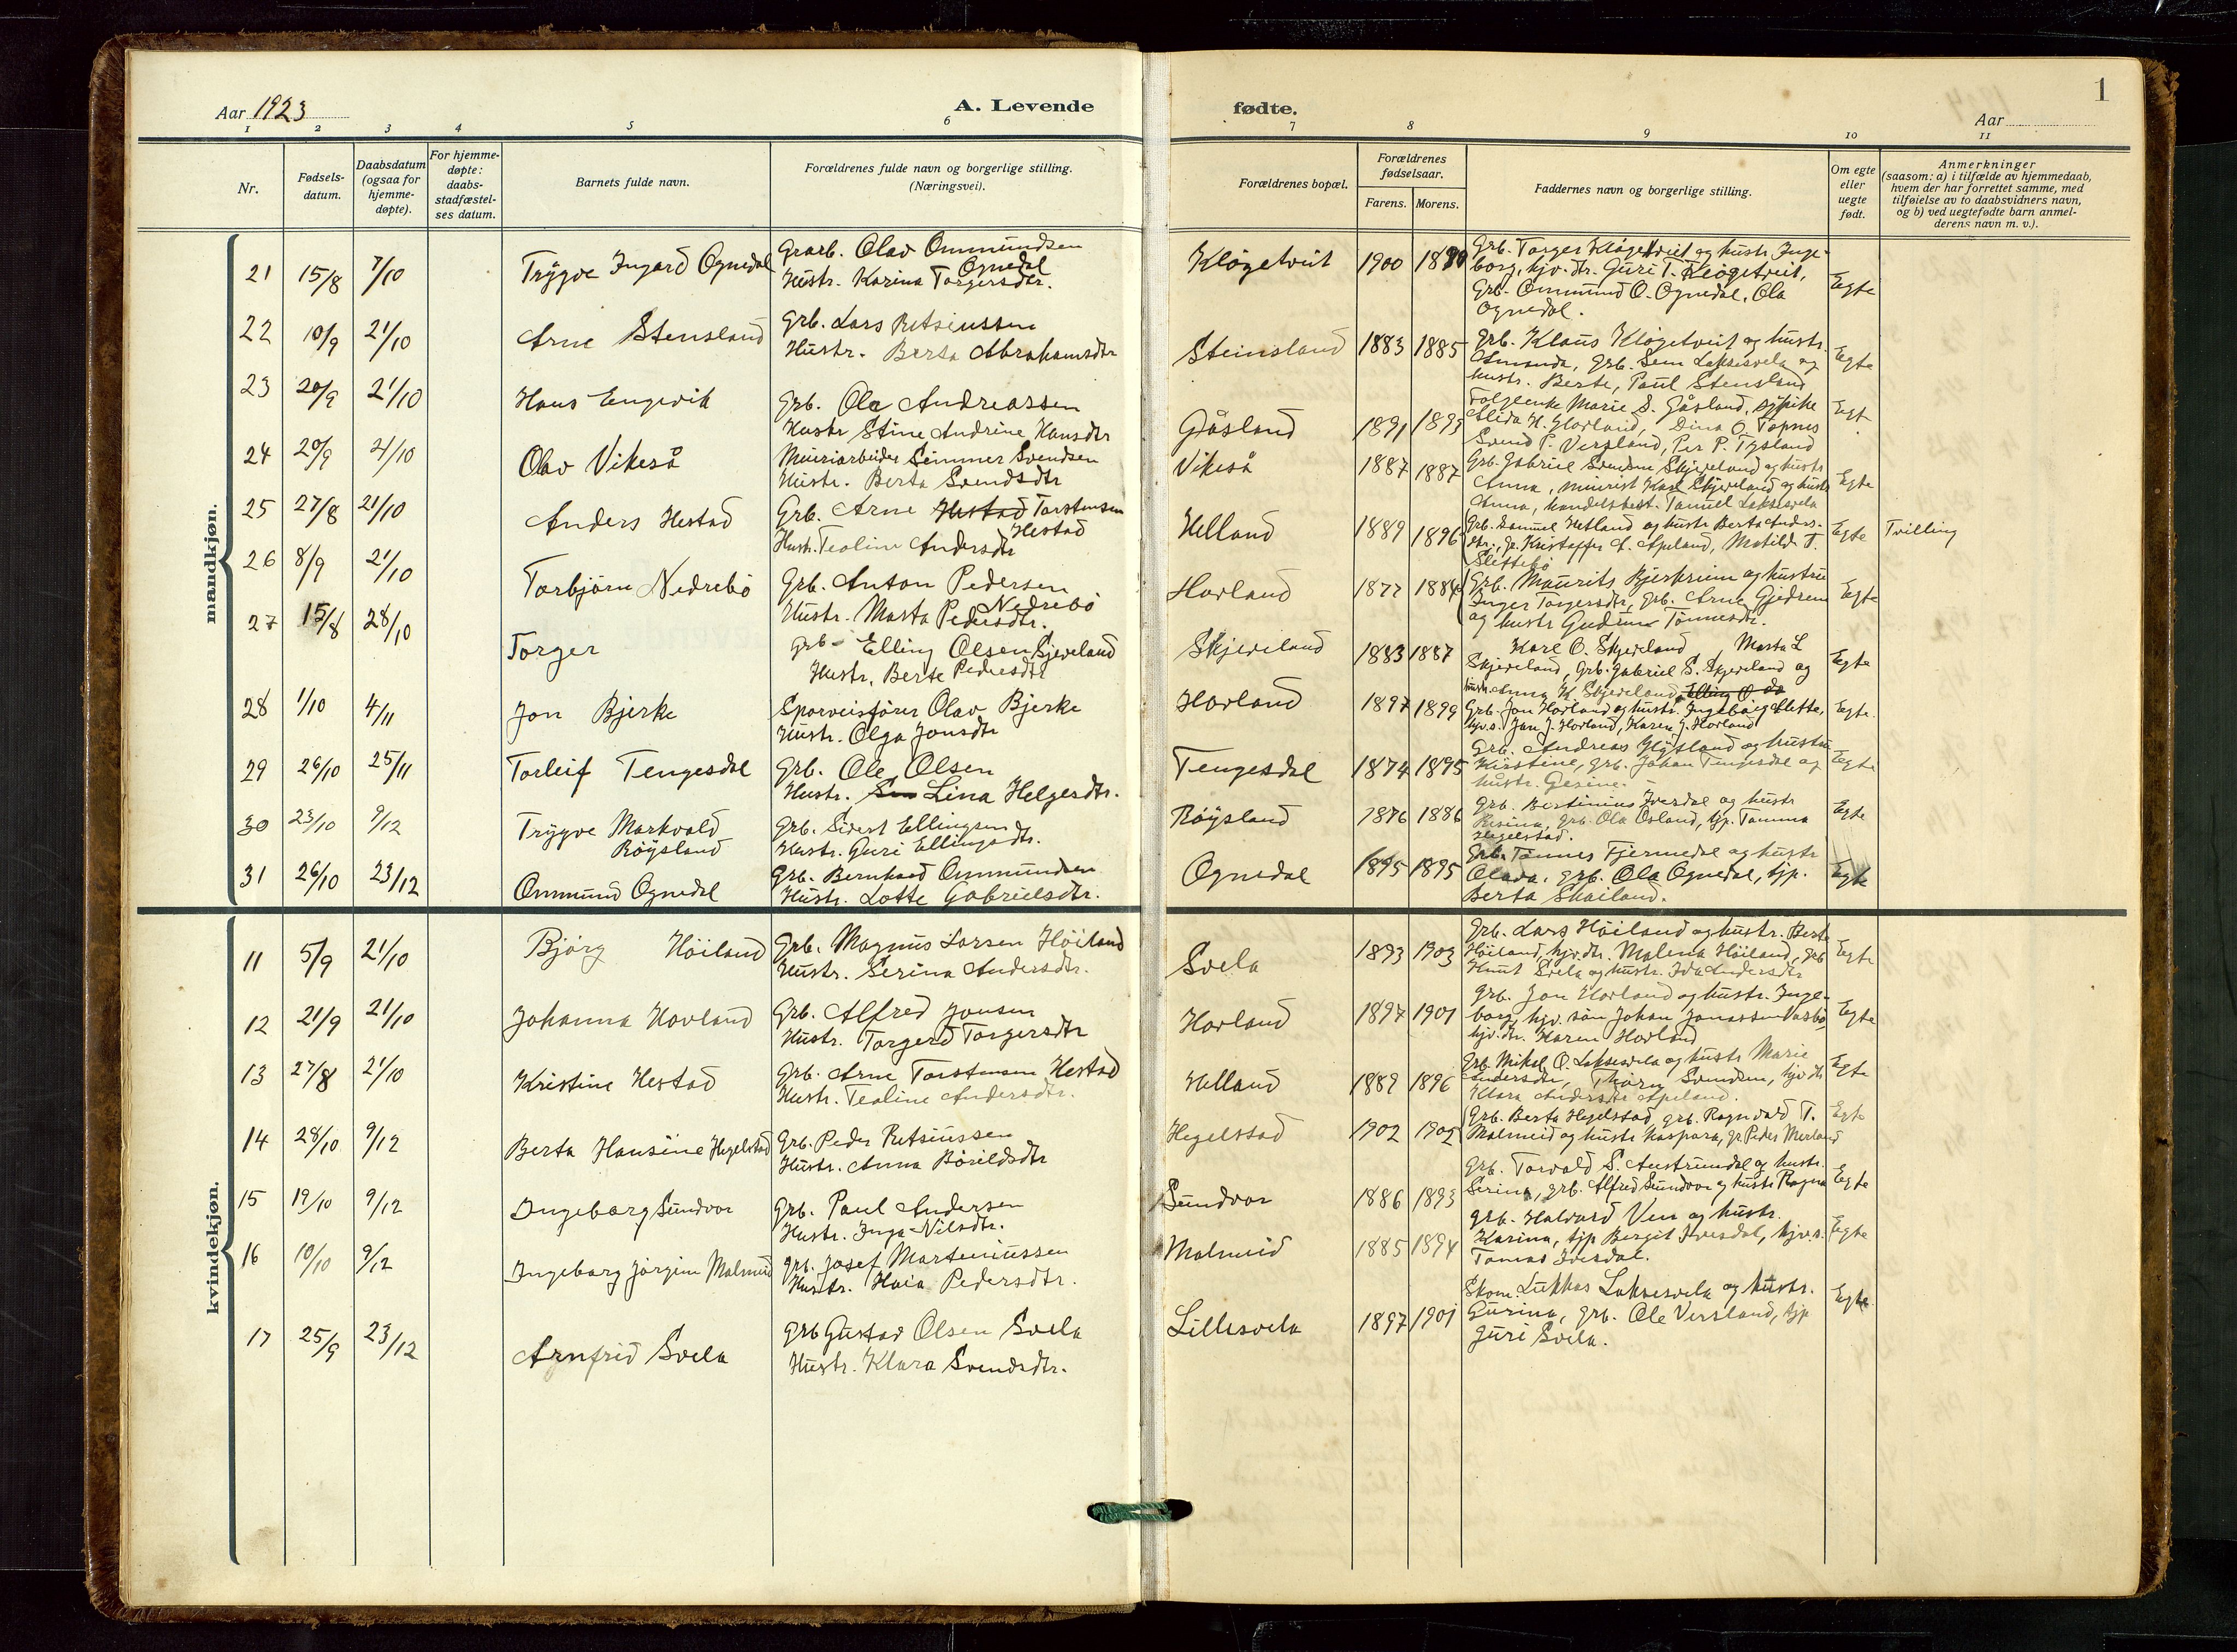 Aar 1923
A. Levende
fødte.
Aar
1
1 2 3 4 5 6 7 8 9 10 11
Nr.
Fødsels-
datum.
Daabsdatum
(ogsaa for
hjemme-
døpte).
For hjemme-
døpte:
daabs-
stadfæstel-
ses datum.
Barnets fulde navn.
Forældrenes fulde navn og borgerlige stilling.
(Næringsvei).
Forældrenes bopæl.
Forældrenes
fødselsaar.
Farens. Morens.
Faddernes navn og borgerlige stilling.
Om egte
eller
uegte
født.
Anmerkninger
(saasom: a) i tilfælde av hjemmedaab,
hvem der har forrettet samme, med
tilføielse av to daabsvidners navn,
og b) ved uegtefødte barn anmel-
derens navn m. v.).
mandkjøn.
21 15/8 7/10 Trygve Ingard Ognedal
Grarb. Olav Ommundsen
Ognedal
Hustr. Karina Torgersdtr.
Kløgetveit 1900
Grb. Torger Kløgetveit og hustr. Inge-
borg, hjv. dtr. Guri T. Kløgetveit,
Grb. Ommund O. Ognedal, Ola
Ognedal.
Egte
22 10/9 21/10 Arne Stensland
Grb. Lars
Hustr. Berta Abrahamsdtr
Steinsland 1883 1885
Grb. Klaus Kløgetveit og hustr.
Amanda, Grb. Sem Laksesvela og
hustr. Berte, Paul Stensland
Egte
23 20/9 21/10 Hans Engevik
Grb. Ola Andreassen
Hustr Stine Andrine Hansdtr
Gåsland 1891 1893
Marie S. Gåsland,
Alida H. Hovland, Dina O.
Svend P. Versland, Per P. Tysland
Egt
24 20/9 21/10 Olav Vikeså
Meieriarbeider Simmer Svendsen
Hustr. Berta Svendsdtr
Vikeså 1887 1887
Grb. Gabriel Svendsen Skjeveland og hustr
Anna, meierist Karl Skjeveland og hustr
Anna, handelsbest. Laksesvela
Egte
25 27/8 21/10 Anders Hestad
Grb. Arne Hestad Torstensen
Hestad
Hustr. Teoline Andersdtr
Helland 1889 1896
Grb. Samuel Hetland og hustr Berta Anders-
dtr., Kristoffer A. Apeland, Matilde T.
Slettebö
Egte Tvilling
26 8/9 21/10 Torbjörn Nedrebö
Grb. Anton Pedersen
Nedrebö
Hustr. Marta Pedersdtr.
Hovland 1877 1884
Grb. Maurits Bjerkreim og hustru
Inger Torgersdtr, Grb. Arne Gjedrem
og hustr Gudrun Tönnesdtr.
Egte
27 15/8 28/10 Torger
Grb. Elling Olsen Sjeveland
Hustr. Berte Pedersdtr
Skjeveland 1883 1887
Karl O. Skjeveland Marta L
Skjeveland, Grb. Gabriel S. Skjeveland og
hustr. Anna K Skjeveland, Elling O
Egte
28 1/10 4/11 Jon Bjerke
Sporveisfører Olav Bjerke
Hustr. Olga Jonsdtr
Hovland 1897 1899
Grb. Jon Hovland og hustr. Ingeborg Mette,
hjv.s. Jan J. Hovland, Karen J. Hovland
Egte
29 26/10 25/11 Torleif Tengesdal
Grb. Ole Olsen
Hustr. Lina Helgesdtr.
Tengesdal 1874 1895
Grb. Andreas og hustru
Kirstine, grb. Johan Tengesdal og
hustr. Gesine.
Egte
30 23/10 9/12 Trygve Markvald
Röysland
Grb. Sivert Ellingsen
Hustr. Guri Ellingsdtr.
Röysland 1876 1886
Grb. Bertinius Ivesdal og hustr
Grb. Ola Osland, tjp. Tamina
Hegelstad.
Egte
31 26/10 23/12 Ommund Ognedal
Grb. Bernhard Ommundsen
Hustr. Lotte Gabrielsdtr.
Ognedal 1895 1895
Grb. Tönnes Fjermedal og hustr
Olava, grb. Ola Ognedal, tjp.
Berta Skailand.
Egte
kvindekjøn.
11 5/9 21/10 Bjørg Höiland
Grb. Magnus Larsen Höiland
Hustr. Serina Andersdtr.
Svela 1893 1903
Grb. Lars Höiland og hustr. Berte
Höiland, hjv.dtr. Malena Höiland, grb
Knut Svela og hustr. Ida Andersdtr
Egte
12 21/9 21/10 Johanna Hovland
Grb. Alfred Jonsen
Hustr. Torgerd Torgersdtr
Hovland 1897 1901
Grb. Jon Hovland og hustr. Inge-
borg, hjv. sön Johan Jonassen
hjv. dtr. Karen Hovland
Egte
13 27/8 21/10 Kristine Hestad
Grb. Arne Torstensen Hestad
Hustr. Teoline Andersdtr.
Helland 1889 1896
Grb. Mikal O. Laksesvela og hustr Marie
Andersdtr, Svendsen, hjv dtr
Klara Andersdtr Apeland.
Egte
14 28/10 9/12 Berta Hansine Hegelstad
Grb. Peder
Hustr. Anna Börildsdtr
Hegelstad 1902 1902
Grb. Berta Hegelstad, grb. Ragnvald T.
Malmeid og hustr Kaspara, gr. Peder
Egte
15 19/10 9/12 Ingeborg Sundvor
Grb. Paul Andersen
Hustr. Inga Nilsdtr.
Sundvor 1886 1893
Grb. Torvald S. Austrumdal og hustr.
Serina, grb. Alfred Sundvor og hustr Ragna
Egte
16 10/10 9/12 Ingeborg Jörgine Malmeid
Grb. Josef Martiniussen
Hustr. Pedersdtr.
Malmeid 1885 1894
Grb. Halvard Ven og hustr.
Karina, tjp Bergit Ivesdal, hjv.s.
Tomas Ivesdal.
Egte
17 25/9 23/12 Arnfrid Svela
Grb Gustav Olsen Svela
Hustr. Klara Svendsdtr.
Lillesvela 1897 1901
Skom. Lukkas Laksesvela og hustr.
Gurina, grb. Ole Versland, tjp
Guri Svela.
Egte